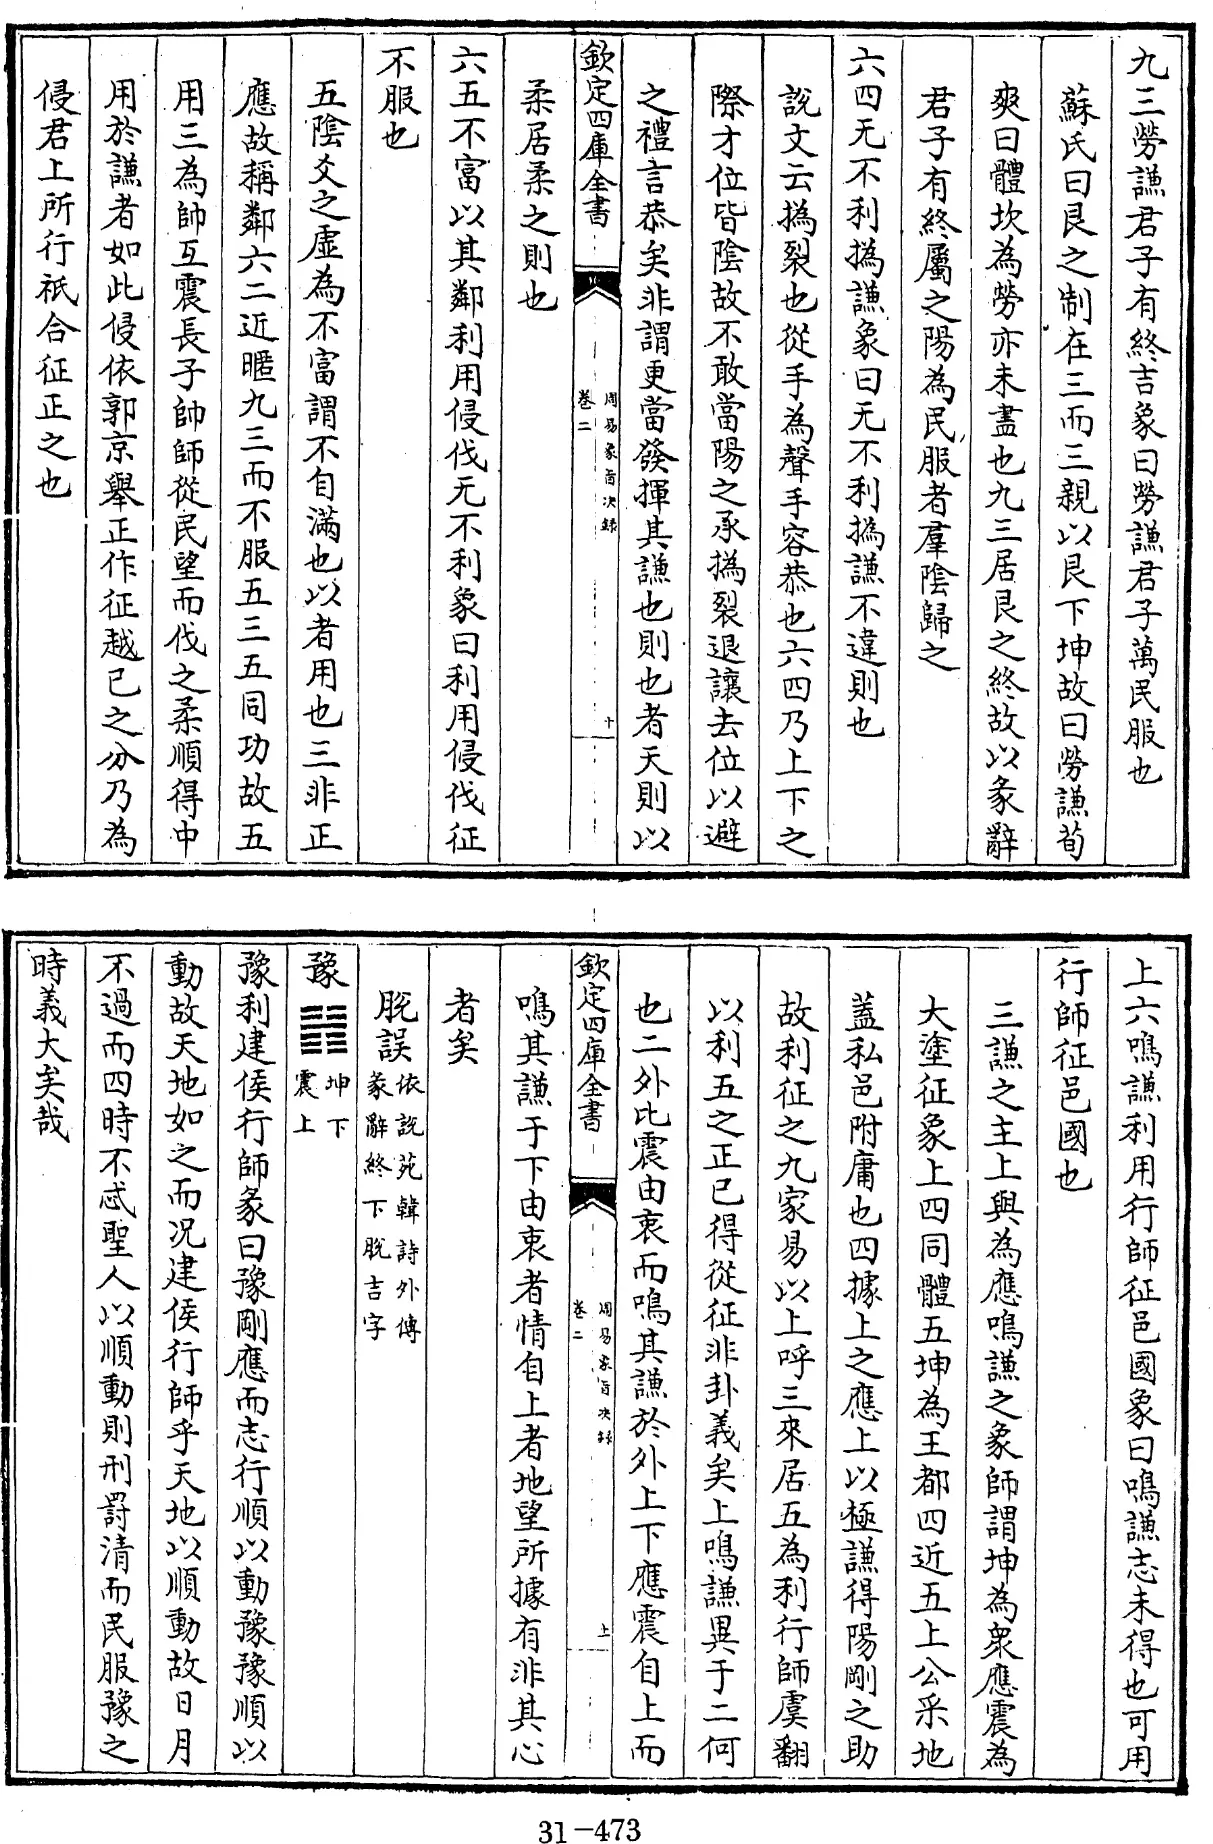 九三勞謙君子有終吉象曰勞謙君子萬民服也
蘇氏曰艮之制在三而三親以艮下坤故曰勞謙荀
爽曰體坎為勞亦未盡也九三居艮之終故以彖辭
君子有終屬之陽為民服者羣陰歸之
六四无不利撝謙象曰无不利撝謙不違則也
說文云撝裂也從手為聲手容恭也六四乃上下之
際才位皆陰故不敢當陽之承撝裂退讓去位以避
之禮言恭矣非謂更當發揮其謙也則也者天則以
欽定四庫全書
周易象旨決錄
卷二
十
柔居柔之則也
六五不富以其鄰利用侵伐无不利象曰利用侵伐征
不服也
五陰爻之虛為不富謂不自滿也以者用也三非正
應故稱鄰六二近暱九三而不服五三五同功故五
用三為帥互震長子帥師從民望而伐之柔順得中
用於謙者如此侵依郭京舉正作征越已之分乃為
侵君上所行祇合征正之也
上六鳴謙利用行師征邑國象曰鳴謙志未得也可用
行師征邑國也
三謙之主上與為應鳴謙之象師謂坤為衆應震為
大塗征象上四同體五坤為王都四近五上公采地
蓋私邑附庸也四據上之應上以極謙得陽剛之助
故利征之九家易以上呼三來居五為利行師虞翻
以利五之正已得從征非卦義矣上鳴謙異于二何
也二外比震由衷而鳴其謙於外上下應震自上而
欽定四庫全書
周易象旨決錄
卷二
上
鳴其謙于下由衷者情自上者地望所據有非其心
者矣
脫誤
依說苑韓詩外傳
彖辭終下脫吉字
豫䷏
坤下
震上
豫利建侯行師彖曰豫剛應而志行順以動豫豫順以
動故天地如之而况建侯行師乎天地以順動故日月
不過而四時不忒聖人以順動則刑罰清而民服豫之
時義大矣哉
31-473